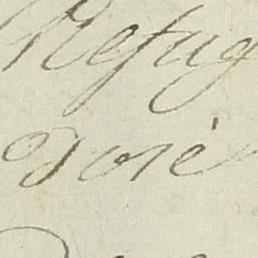 Refug
José